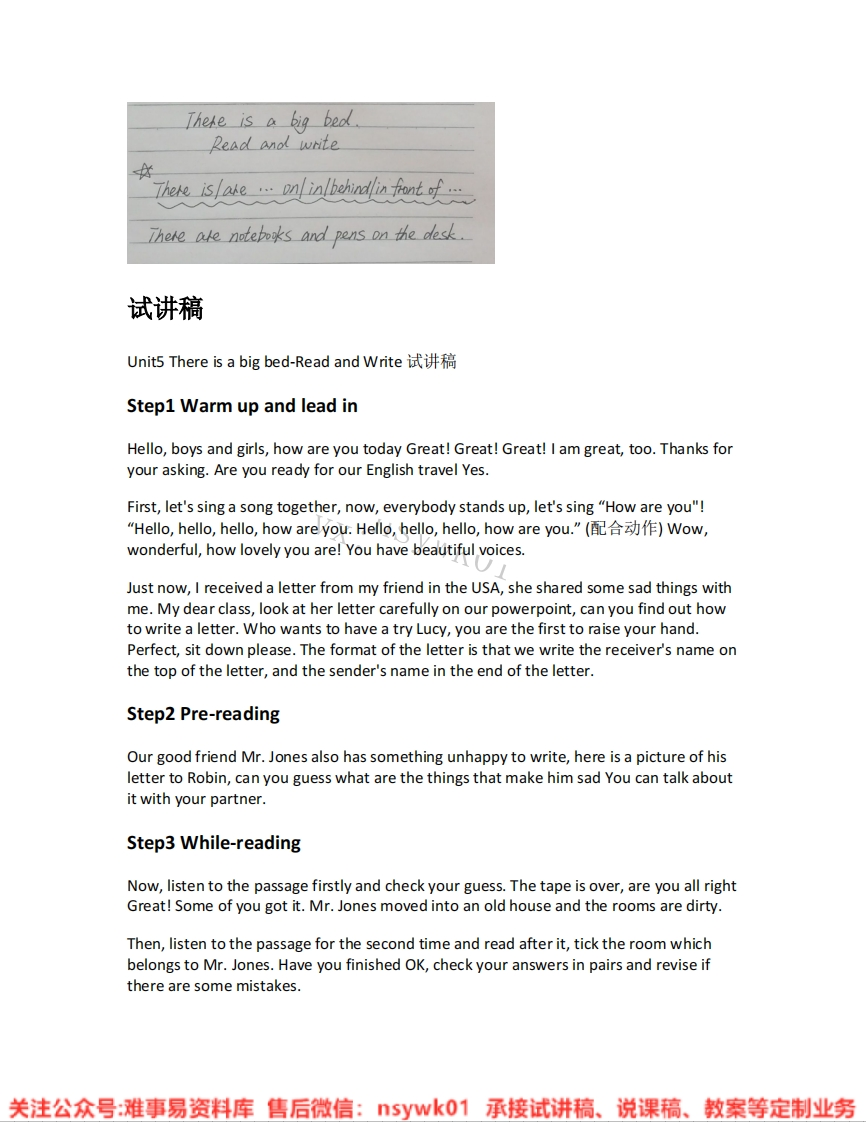 There is a big bed.
Read and write
☆
There is/are ... on/in/behind/in front of ...
There are notebooks and pens on the desk.
试讲稿
Unit5 There is a big bed-Read and Write 试讲稿
Step1 Warm up and lead in
Hello, boys and girls, how are you today Great! Great! Great! I am great, too. Thanks for
your asking. Are you ready for our English travel Yes.
First, let's sing a song together, now, everybody stands up, let's sing “How are you"!
“Hello, hello, hello, how are you. Hello, hello, hello, how are you.” (配合动作) Wow,
wonderful, how lovely you are! You have beautiful voices.
Just now, I received a letter from my friend in the USA, she shared some sad things with
me. My dear class, look at her letter carefully on our powerpoint, can you find out how
to write a letter. Who wants to have a try Lucy, you are the first to raise your hand.
Perfect, sit down please. The format of the letter is that we write the receiver's name on
the top of the letter, and the sender's name in the end of the letter.
Step2 Pre-reading
Our good friend Mr. Jones also has something unhappy to write, here is a picture of his
letter to Robin, can you guess what are the things that make him sad You can talk about
it with your partner.
Step3 While-reading
Now, listen to the passage firstly and check your guess. The tape is over, are you all right
Great! Some of you got it. Mr. Jones moved into an old house and the rooms are dirty.
Then, listen to the passage for the second time and read after it, tick the room which
belongs to Mr. Jones. Have you finished OK, check your answers in pairs and revise if
there are some mistakes.
关注公众号:难事易资料库 售后微信：nsywk01 承接试讲稿、说课稿、教案等定制业务